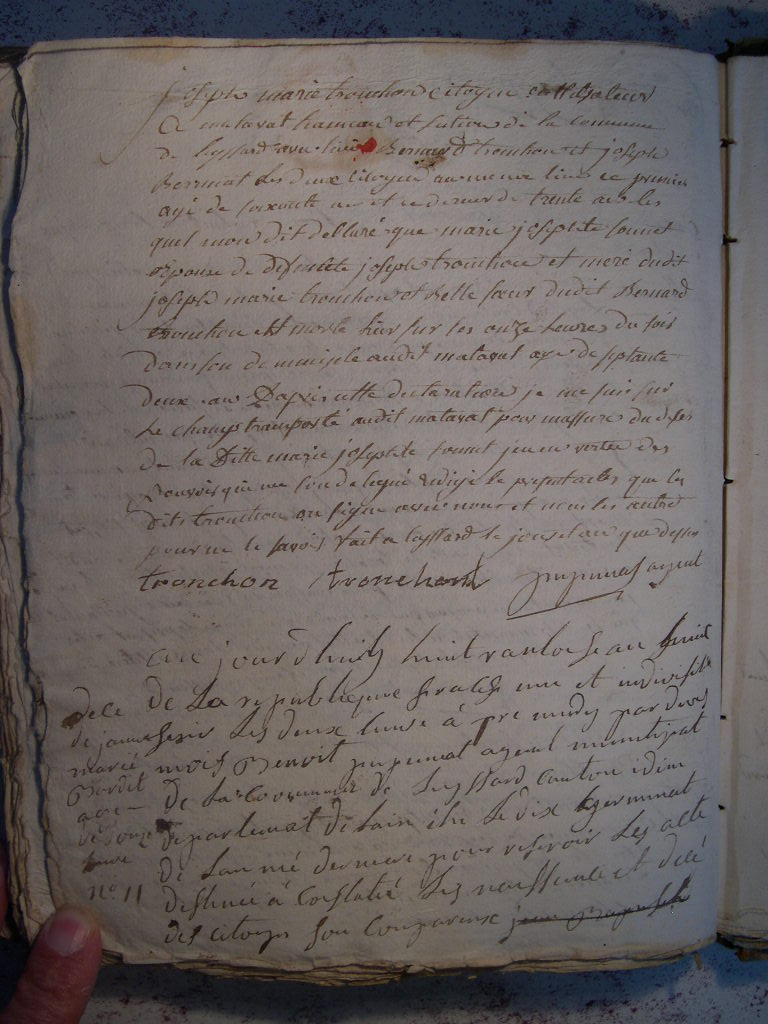 joseph marie tronchon citoyen cultivateur
a matavat hameau et section de la commune
de Leyssard avec lui Bernard tronchon et joseph
Bermat les deux citoyen au meme lieu ce premier
agé de soixante ans et ce dernier de trente ans les
quel mon dit declaré que marie josephte tonnet
epouse de deffunt joseph tronchon et mere dudit
joseph marie tronchon et Belle soeur dudit Bernard
tronchon est morte hier sur les onze heures du soir
dans son domicile audit matavat agé de septante
deux ans Dapres cette declaration je me suis sur
le champ transporté audit matavat pour massuré du deces
de la Ditte marie josephte tonnet jen en vertu des
pouvoir qui me son delegué redigé le present acte que les
dits tronchon on signe avec nous et non les autre
pour ne le savoir fait a Leyssard le jour et an que dessus
tronchon tronchon agent
au jourdhuit huit vantose an huit
de La republique fransaise une et indivisible
Les deux heure à pre midy par devs
mois Benoit agent municipal
de La commune de Leyssard canton
departemat de Lain elu Le dix germinal
de Lan né derniere pour resevoir Les acte
destiné à constaté Les naissance et décé
des citoyen son comparue
dece
de janne
marie
age
de douze
heure
n° 11